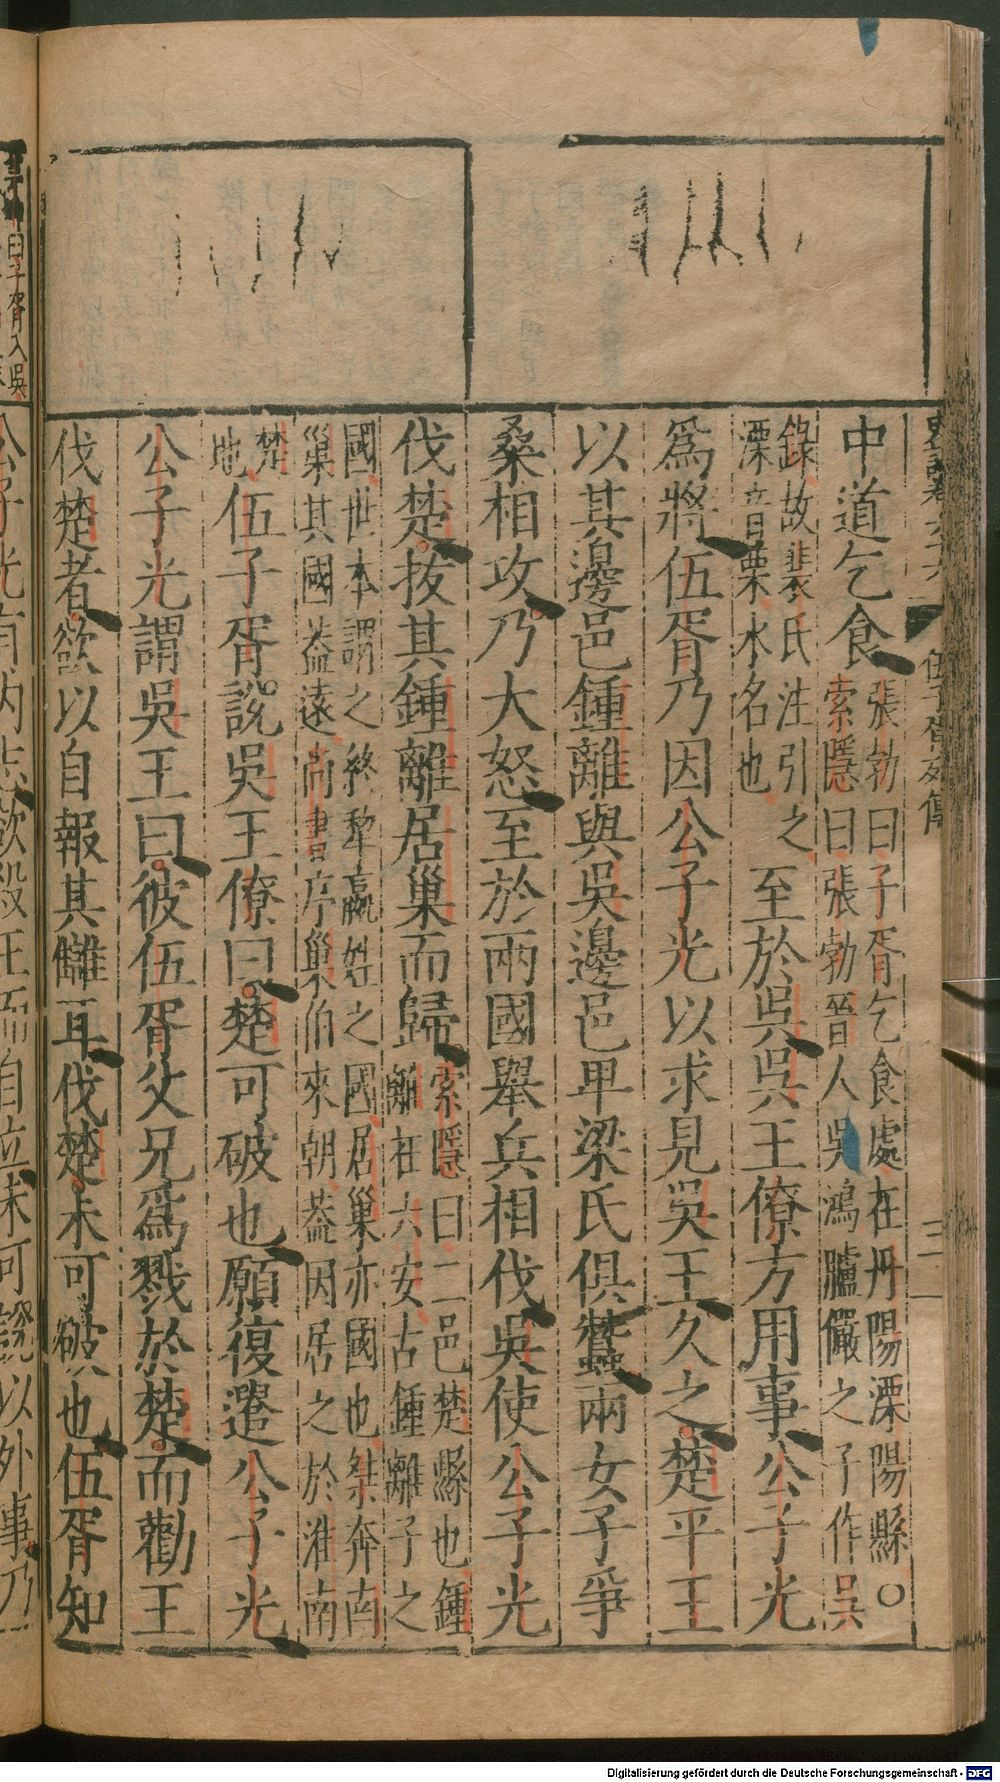 史記卷六十六 伍子胥列傳 三
中道乞食張勃曰子胥乞食處在丹陽溧陽縣○
索隱曰張勃晉人吳鴻臚儼之子作吳
錄故裴氏注引之
溧音栗水名也至於吳吳王僚方用事公子光
爲將伍胥乃因公子光以求見吳王久之楚平王
以其邊邑鍾離與吳邊邑卑梁氏俱蠶兩女子爭
桑相攻乃大怒至於兩國舉兵相伐吳使公子光
伐楚拔其鍾離居巢而歸索隱曰二邑楚縣也鍾
離在六安古鍾離子之
國世本謂之終犂嬴姓之國居巢亦國也桀奔南
巢其國蓋遠尚書序巢伯來朝蓋因居之於淮南
楚
地伍子胥說吳王僚曰楚可破也願復遣公子光
公子光謂吳王曰彼伍胥父兄爲戮於楚而勸王
伐楚者欲以自報其讎耳伐楚未可破也伍胥知
曰子胥入吳
公子光有內志欲殺王而自立未可說以外事乃
Digitalisierung gefördert durch die Deutsche Forschungsgemeinschaft - DFG